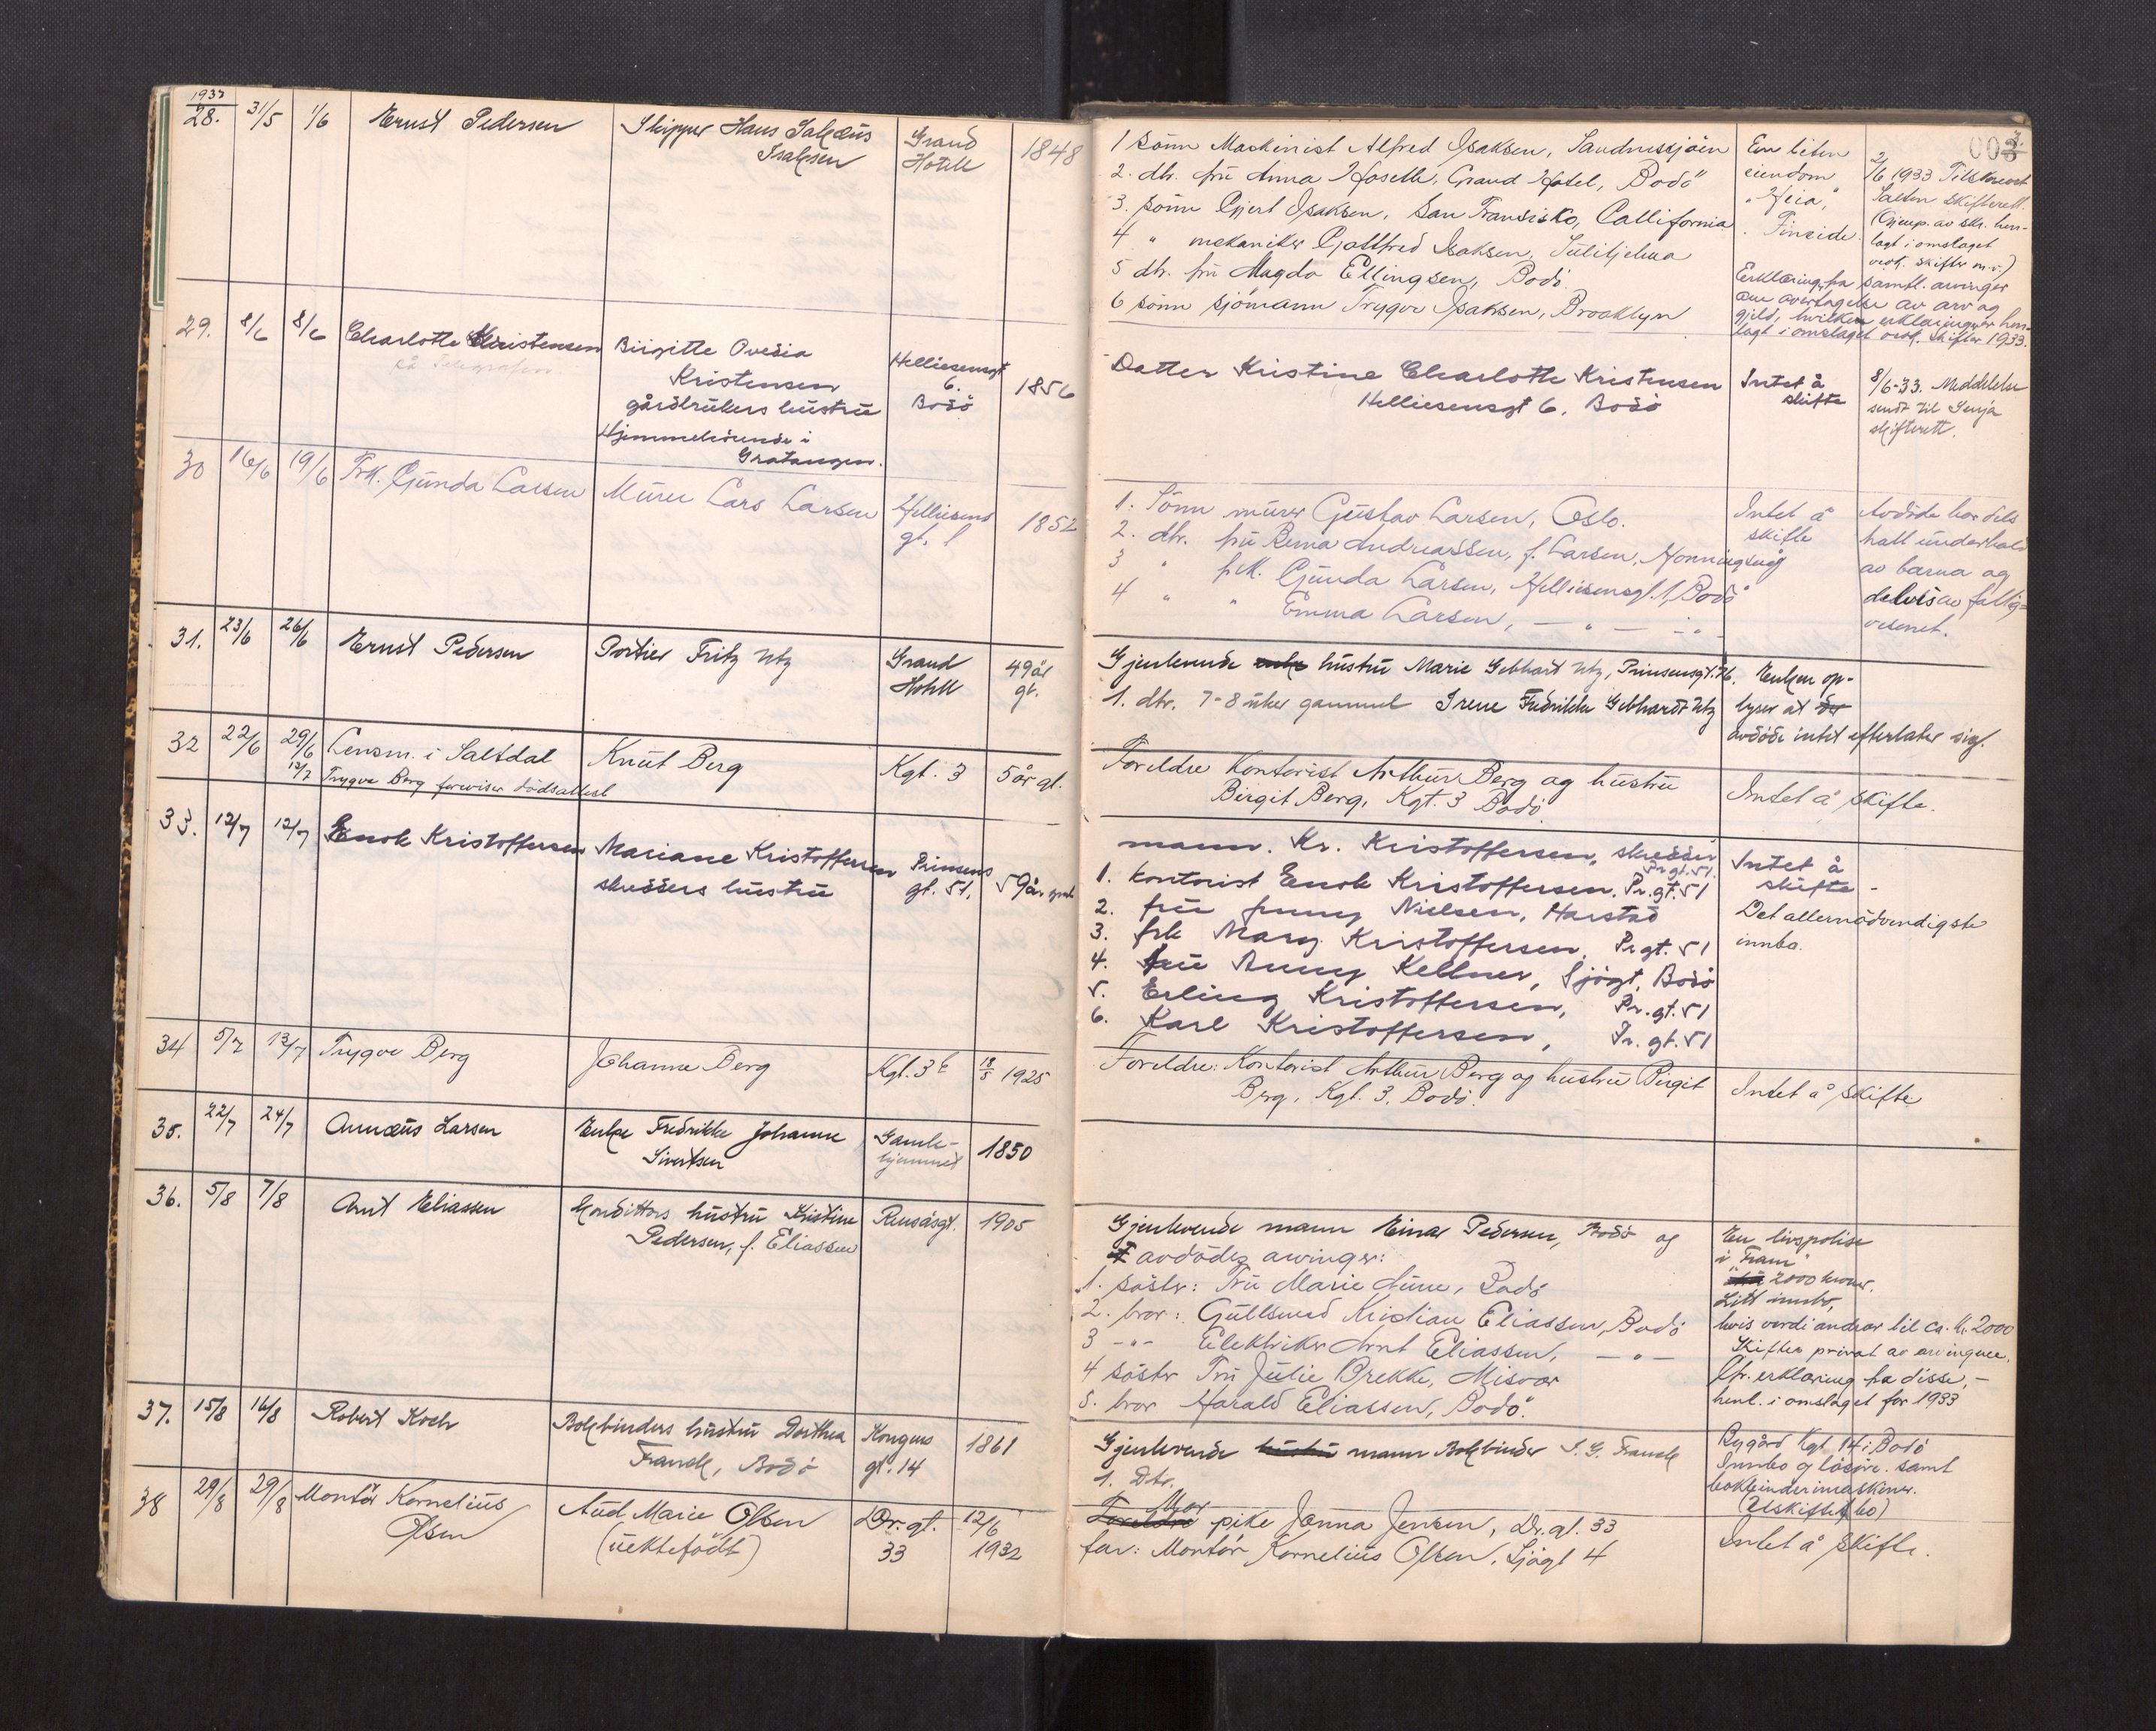 1933
28. 31/5 1/6 Ernst Pedersen Skipper Hans Jakæus Grand 1848
Isaksen Hotell
29. 8/6 8/6 Charlotte Kristensen Birgitte Ovedia Helliesensgt 1856
på Telegrafen Kristensen 6.
gårdbrukers hustru Bodö
Hjemmehörende i
Gratangen.
30 16/6 19/6 Frk. Gunda Larsen Murer Lars Larsen Helliesens 1852
gt. 1
31. 23/6 26/6 Ernst Pedersen Portier Fritz Utz Grand 49 år
Hotell gl.
32 22/6 29/6 Lensm. i Saltdal Knut Berg Kgt. 3 5 år gl.
12/7 Trygve Berg foreviser dödsattest
33. 12/7 12/7 Enok Kristoffersen Mariane Kristoffersen Prinsens 59 år
skredders hustru gt. 51,
34 5/7 13/7 Trygve Berg Johanne Berg Kgt. 3 18/5 1925
35. 22/7 24/7 Annæus Larsen Enke Fredrikke Johanne Gamle- 1850
Sivertsen hjemmet
36. 5/8 7/8 Arnt Eliassen Konditors hustru Kristine Rensåsgt. 1905
Pedersen, f. Eliassen
37. 15/8 16/8 Robert Koch Bokbinders hustru Dorthea Kongens 1861
Franck, Bodö gt. 14
38 29/8 29/8 Montör Kornelius Aud Marie Olsen Dr. gt. 12/6
Olsen (uektefödt) 33 1932
003
3.
1 sönn Maskinist Alfred Isaksen, Sandnessjöen En liten 2/6 1933 Tilskrevet
2. dtr. fru Anna Hoseth, Grand Hotel, Bodö eiendom Salten skifterett.
3. sönn Gjert Isaksen, San Fransisko, Callifornia "Heia", (Gjenp. av skr. hen-
4 " mekaniker Gottfred Isaksen, Sulitjelma Fineide. lagt i omslaget
5 dtr. fru Magda Ellingsen, Bodö. vedr. skifter m.v.)
6 sönn sjömann Trygve Isaksen, Brooklyn Erklæring fra samtl. arvinger
om overtagelse av arv og
gjeld, hvilken erklæring er hen-
lagt i omslaget vedr. Skifter 1933.
Datter Kristine Charlotte Kristensen Intet å 8/6-33. Meddelelse
Helliesensgt 6. Bodö skifte sendt til Senja
skifterett.
1. Sönn murer Gustav Larsen, Oslo. Intet å Avdöde har dels
2. dtr. fru Rema Andreassen, f. Larsen, Honningsvåg skifte hatt underhold
3 " frk. Gunda Larsen, Helliesensgt. 1, Bodö av barna og
4 " " Emma Larsen, — " — " — delvis av fattig-
vesenet.
Gjenlevende enke hustru Marie Gebhart Utz, Prinsensgt. Enken op-
1. dtr. 7-8 uker gammel Irene Fredrikke Gebhardt Utz lyser at der
avdöde intet efterlater sig.
Foreldre Kontorist Arthur Berg og hustru Intet å skifte.
Birgit Berg, Kgt. 3 Bodö.
mann. Kr. Kristoffersen, skredder Intet å
Pr. gt. 51. skifte -
1. Kontorist Enok Kristoffersen. Pr. gt. 51
2. fru Jenny Nielsen, Harstad Det allernödvendigste
3. frk Mary Kristoffersen, Pr. gt. 51 innbo.
4. fru Anny Kellner, Sjögt, Bodö
5. Erling Kristoffersen, Pr. gt. 51
6. Karl Kristoffersen, Pr. gt. 51
Foreldre: Kontorist Arthur Berg og hustru Birgit Intet å skifte
Berg, Kgt. 3, Bodö.
Gjenlevende mann Einar Pedersen, Bodö og En livspolise
avdödes arvinger: i "Fram"
1. söster: Fru Marie Aune, Bodö 2000 kroner.
2. bror: Gullsmed Kristian Eliassen, Bodö Litt innbo,
3 -"- Elektriker Arnt Eliassen, — " — hvis verdi andrar til ca. kr. 2000
4 söster Fru Julie Brekke, Misvær Skiftes privat av arvingene,
5. bror Harald Eliassen, Bodö. Cfr. erklæring fra disse, -
henl. i omslaget for 1933
Gjenlevende hustru mann Bokbinder S. G. Franck Bygård Kgt. 14 i Bodö
1. Dtr. Innbo og lösöre. samt
bokbindermaskiner.
(Uskiftet bo)
Foreldre Mor pike Janna Jensen, Dr. gt. 33 Intet å skifte.
far: Montör Kornelius Olsen, Sjögt 4